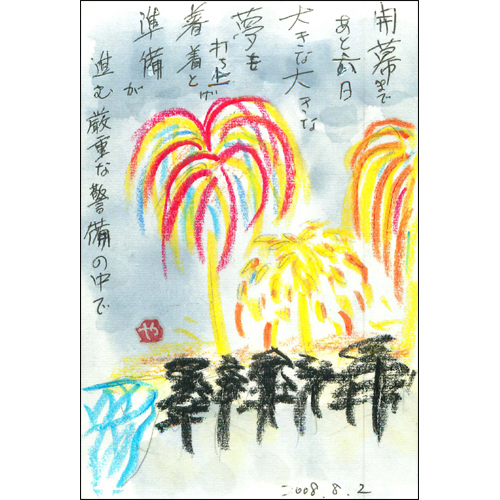 開幕まで
あと六日
大きな大きな
夢を
打ち上げ
着着と
準備が
進む厳重な警備の中で
2008.8.2